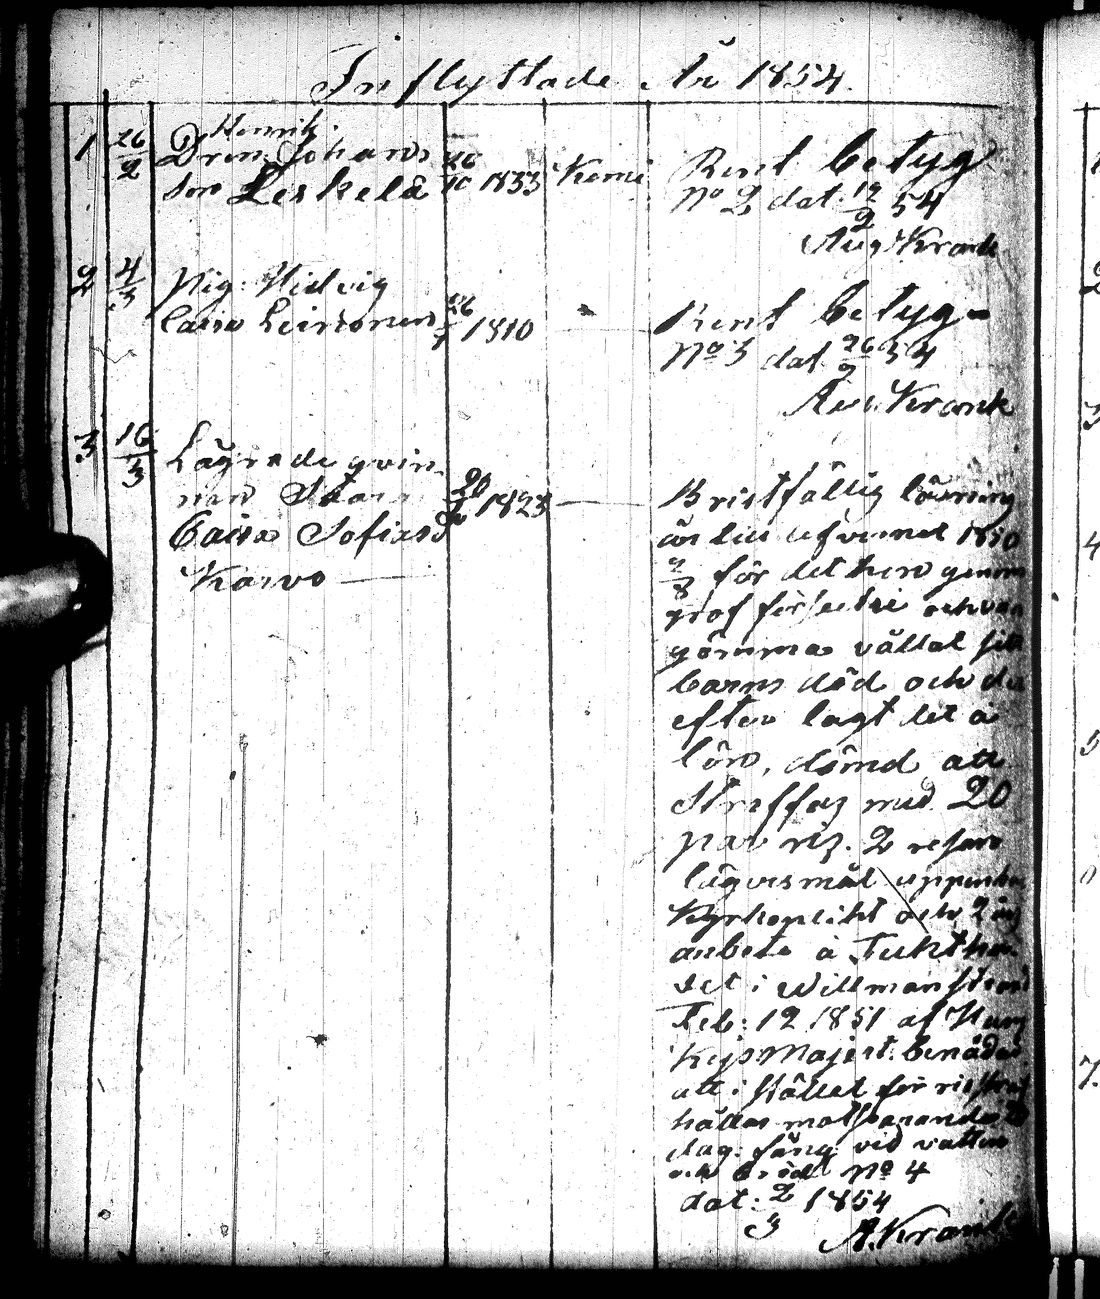 Inflyttade År 1854.
1 26/2 Henrik
Dren. Johans
son Leskelä 26/10 1833 Kemi Rent betyg
No 2 dat. 12/2 54
Aug Krank
2 4/3 Pig. Hedvig
Caisa Leinonen 1810 Rent betyg
No 3 dat 26/2 54
Aug. Krank
3 16/3 Lägrade qvin
nan
Caisa Sofia
Karvo 20 1823 Bristfällig läsning
1850
för det hon genom
grof och
gömma vållat sitt
barns död och der
efter lagt det å
lön, dömd att
straffas med 20
par ris. 2 resan
lägersmål uppenbar
Kyrkoplikt och 2 års
arbete å Tukthu
set i Willmanstrand
Feb: 12 1851 af Hans
Kejs Majest. benådad
att i stället för risstraf
hållas motsvarande
dag. fäng. vid vatten
och bröd No 4
dat. 2/3 1854
A. Krank